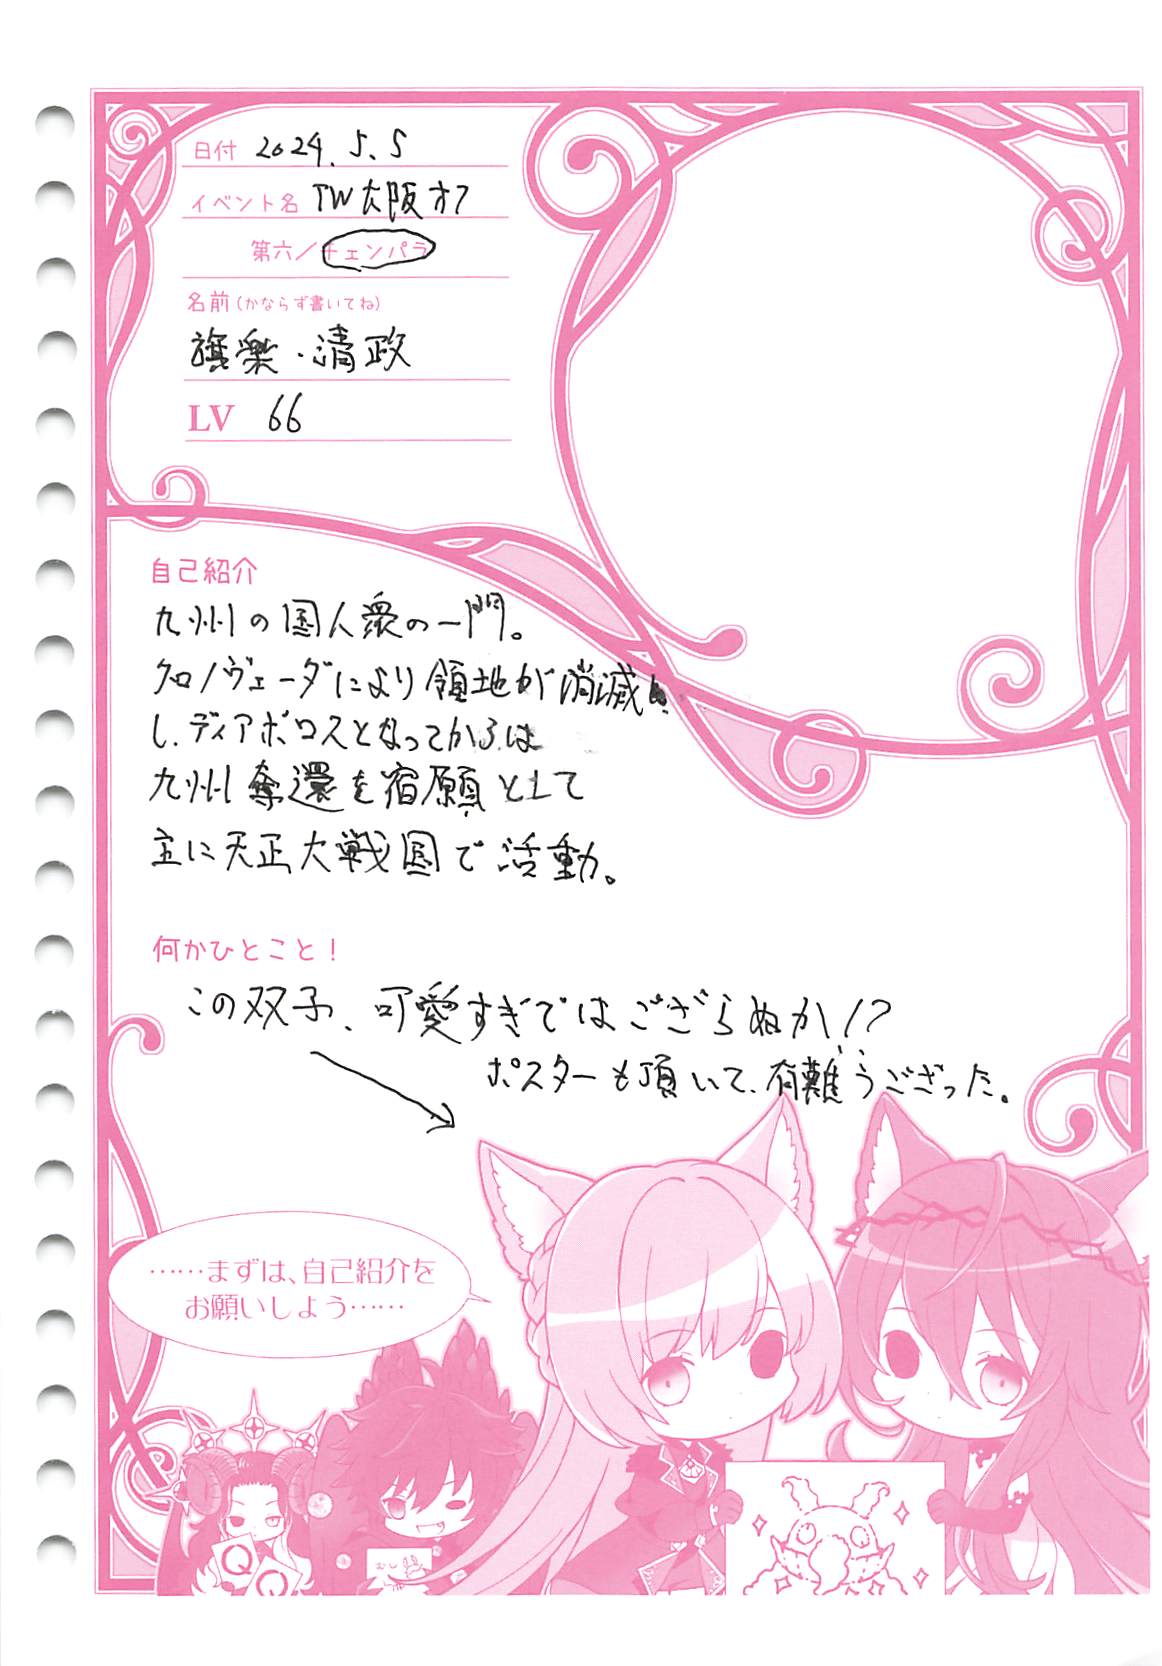 日付 2024.5.5
イベント名 TW大阪オフ
第六／チェンパラ
名前(かならず書いてね)
・清政
LV 66
自己紹介
九州の国人衆の一門。
クロノヴェーダにより領地が消滅
し、ディアボロスとなってからは
九州奪還を宿願として
主に天正大戦国で活動。
何かひとこと！
この双子、可愛すぎではござらぬか!?
ポスターも頂いて、有難うござった。
……まずは、自己紹介を
お願いしよう……
Q
Q